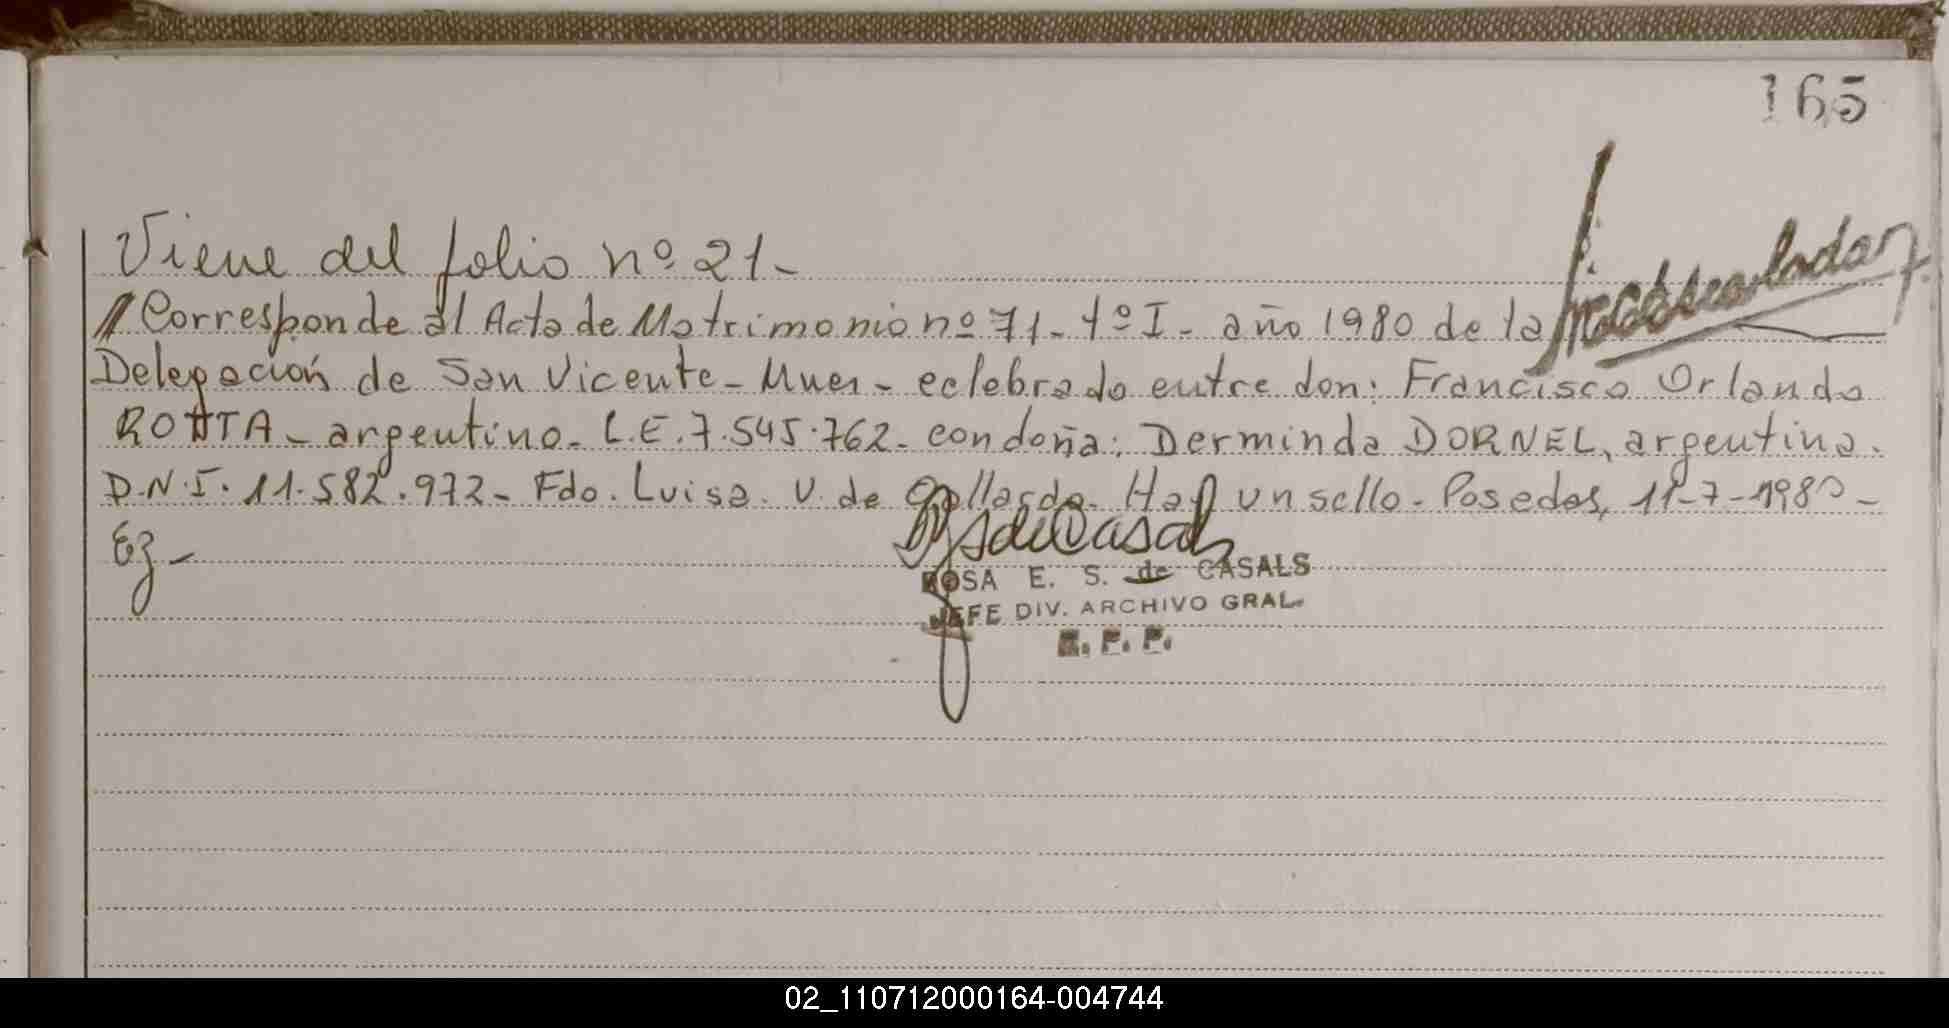 165
Viene del folio nº 21-
// Corresponde al Acta de Matrimonio nº 71- tº I- año 1980 de la
Delegación de San Vicente- Mnes- eclebrado entre don: Francisco Orlando
ROTTA- argentino- L.E. 7.545.762- con doña: Derminda DORNEL, argentina.
D.N.I. 11.582.972- Fdo. Luisa. V. de Gallardo. Hay un sello. Posadas, 11-7-1980-
Ez-
ROSA E. S. de CASALS
JEFE DIV. ARCHIVO GRAL.
R. P. P.
02_110712000164-004744